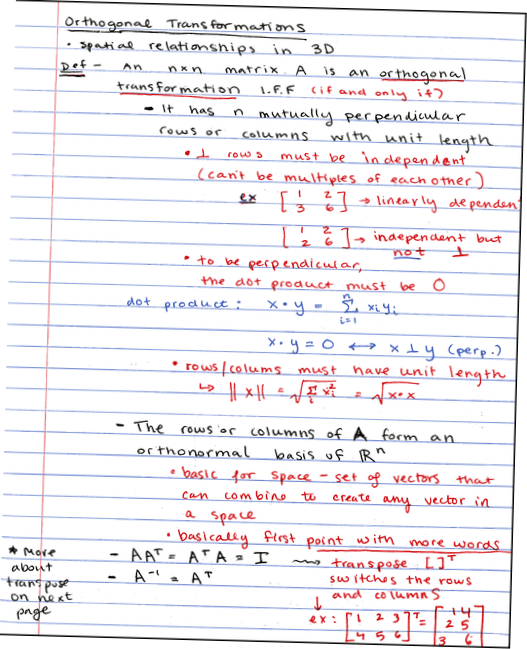 Orthogonal Transformations
• spatial relationships in 3D
Def - An n×n matrix A is an orthogonal
transformation I.F.F (if and only if)
- It has n mutually perpendicular
rows or columns with unit length
• ⊥ rows must be independent
(can't be multiples of each other)
ex [1 2; 3 6] → linearly dependen
[1 2; 2 6] → independent but
not ⊥
• to be perpendicular,
the dot product must be 0
dot product: x • y = Σ_{i=1}^{n} xᵢyᵢ
x • y = 0 ↔ x ⊥ y (perp.)
• rows/colums must have unit length
↳ ||x|| = √(Σᵢ xᵢ²) = √(x•x)
- The rows or columns of A form an
orthonormal basis of ℝⁿ
• basic for space - set of vectors that
can combine to create any vector in
a space
• basically first point with more words
* More
about
transpose
on next
page
- AAᵀ = AᵀA = I ⟿ transpose [ ]ᵀ
- A⁻¹ = Aᵀ
switches the rows
and columns
↓
ex: [1 2 3; 4 5 6]ᵀ = [1 4; 2 5; 3 6]